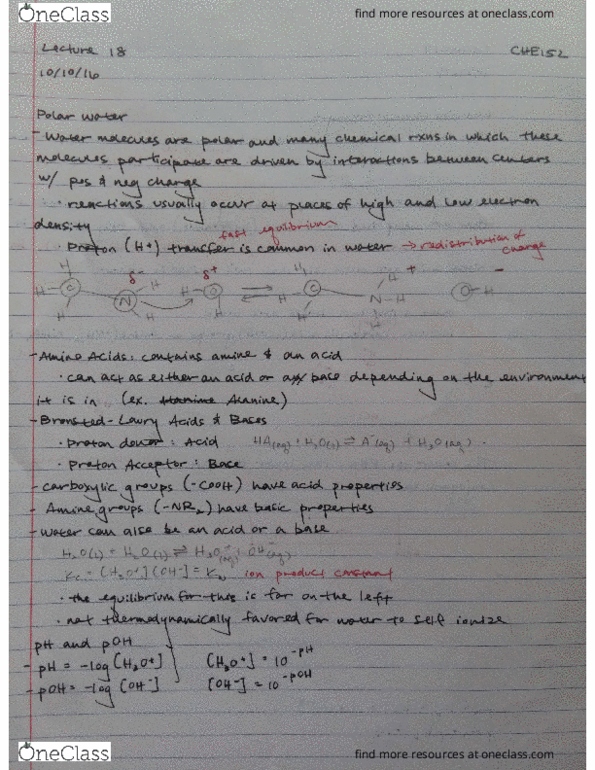 OneClass
find more resources at oneclass.com
Lecture 18
CHE152
10/10/16
Polar water
- Water molecules are polar and many chemical rxns in which these
molecules participate are driven by interactions between centers
w/ pos & neg charge
· reactions usually occur at places of high and low electron
density
fast equilibrium
· Proton (H+) transfer is common in water → redistribution of
charge
H H +
δ- δ+ -
H - C N H H - O ⇌ H C N - H O - H
H H H H H
- Amino Acids: contains amine & an acid
· can act as either an acid or a base depending on the environment
it is in (ex. Alanine)
- Bronsted-Lowry Acids & Bases
· Proton donor: Acid HA(aq) + H2O(l) ⇌ A-(aq) + H3O(aq)
· Proton Acceptor: Base
- carboxylic groups (-COOH) have acid properties
- Amine groups (-NR2) have basic properties
- water can also be an acid or a base
H2O(l) + H2O(l) ⇌ H3O+(aq) + OH-(aq)
Kc = [H3O+][OH-] = Kw ion product constant
· the equilibrium for this is far on the left
· not thermodynamically favored for water to self ionize
pH and pOH
- pH = -log[H3O+] [H3O+] = 10-pH
- pOH = -log[OH-] [OH-] = 10-pOH
OneClass
find more resources at oneclass.com